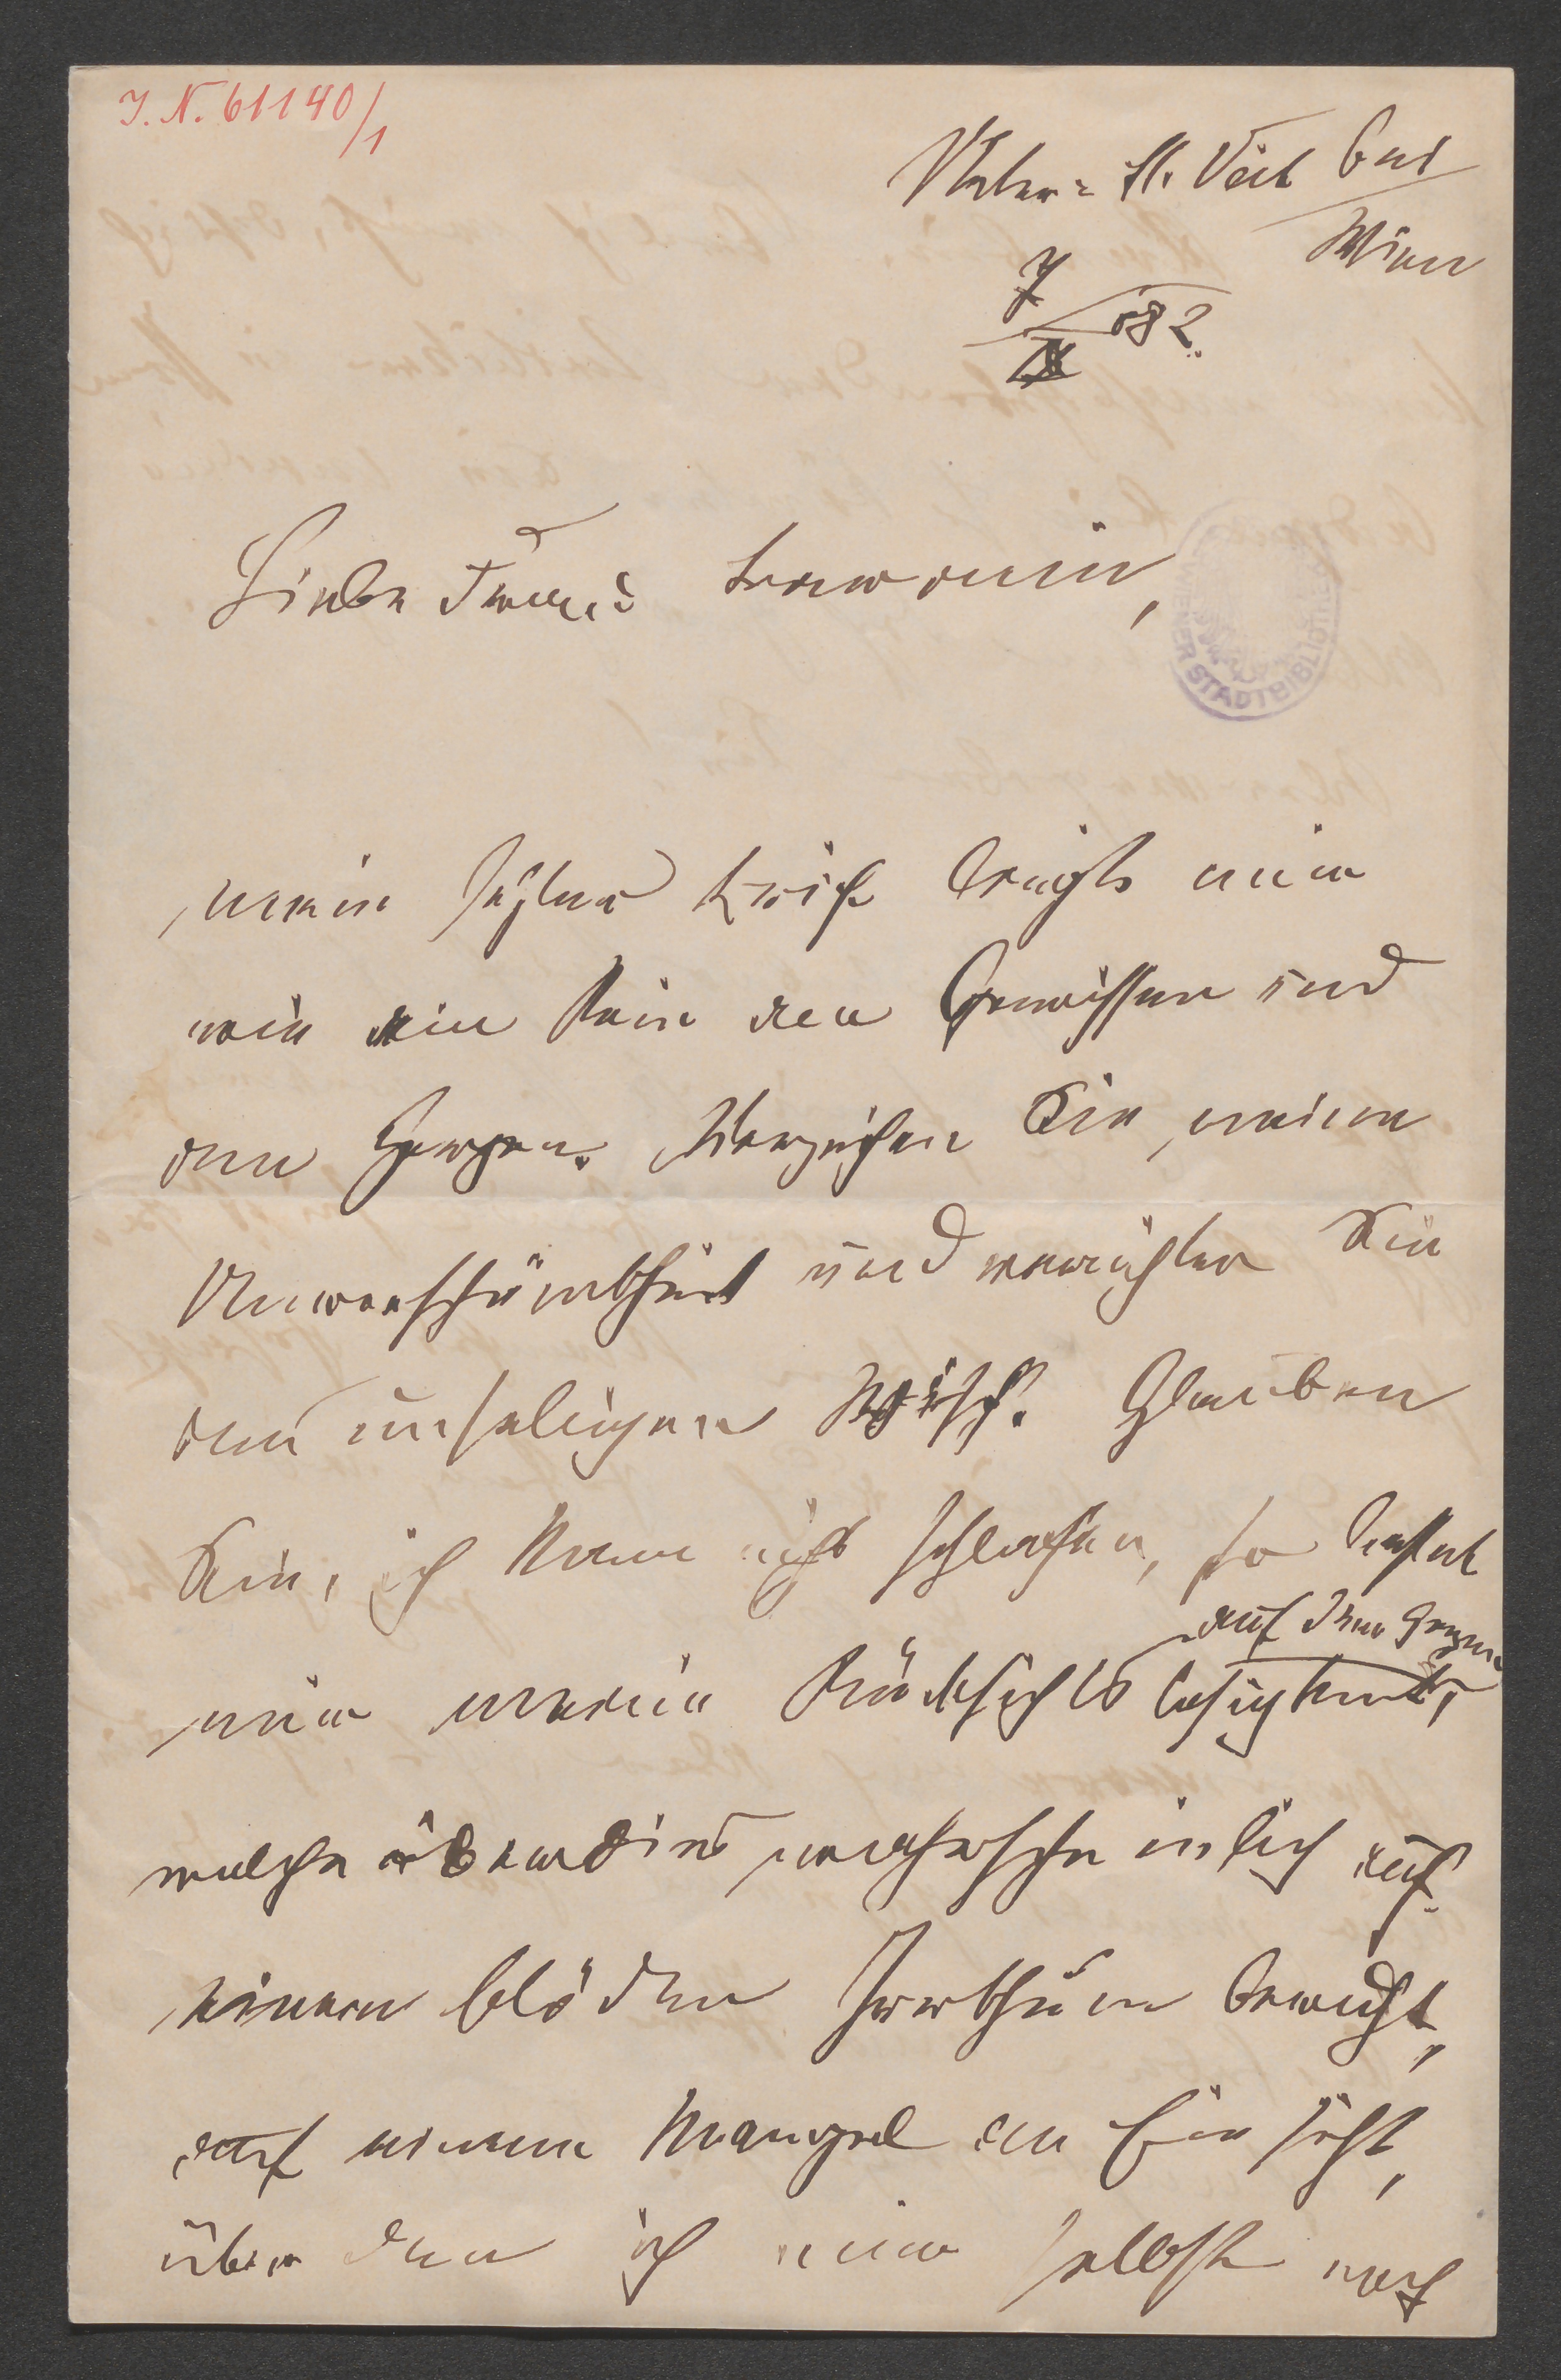 J. N. 61140/1
Unter-St. Veit bei
Wien
7
IX 882.
Liebe Frau
STADTBIBLIOTHEK
mein letzter Brief brennt mir
wie ein Stein den Gewissen und
am Herzen. Verzeihen Sie meine
Unverschämtheit und vernichten Sie
den unseligen Wisch. Glauben
Sie, ich kann nicht schlafen, so lastet
auf dem Herzen
mir meine Rücksichtslosigkeit,
welche überdies wahrscheinlich auf
einem blöden Irrthum beruht,
auf einem Mangel an Einsicht,
über den ich mir selbst noch